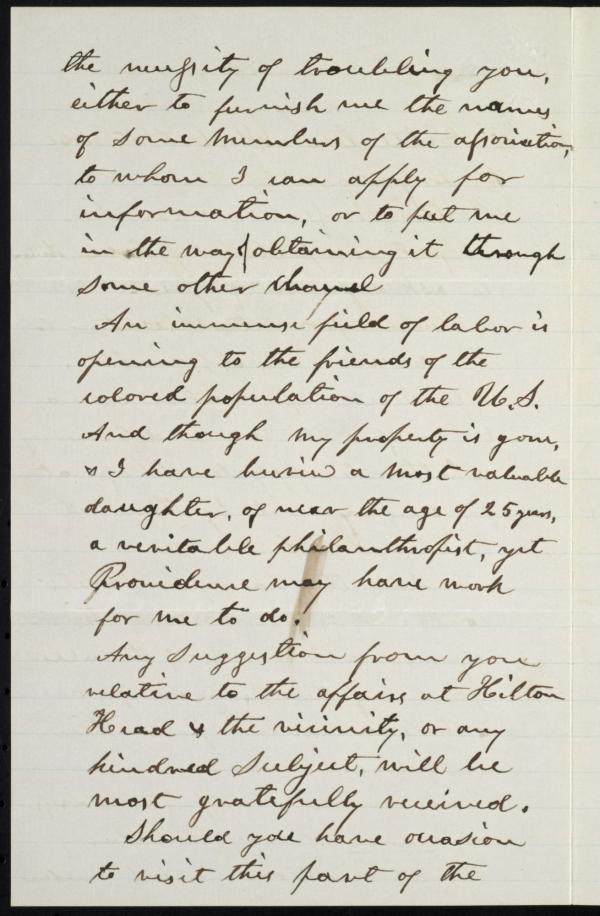 the necessity of troubling you,
either to furnish me the names
of some members of the association,
to whom I can apply for
information, or to put me
in the way of obtaining it through
some other channel
An immense field of labor is
opening to the friends of the
colored population of the U.S.
And though my property is gone,
& I have buried a most valuable
daughter, of near the age of 25 years,
a veritable philanthropist, yet
Providence may have work
for me to do.
Any suggestion from you
relative to the affairs at Hilton
Head & the vicinity, or any
kindred subject, will be
most gratefully received.
Should you have occasion
to visit this part of the